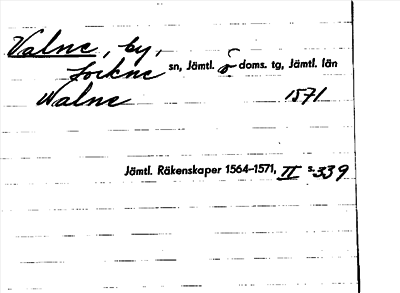 Valne, by,
Lockne sn, Jämtl. ö doms. tg, Jämtl. län
Walne 1571
Jämtl. Räkenskaper 1564–1571, II s. 339